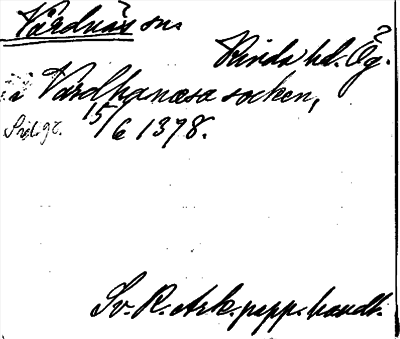 Vårdnäs sn.
Kinda hd. Ög.
i Vardhanæsa socken,
15/6 1378.
Sv. R. Ark. papp. handl.